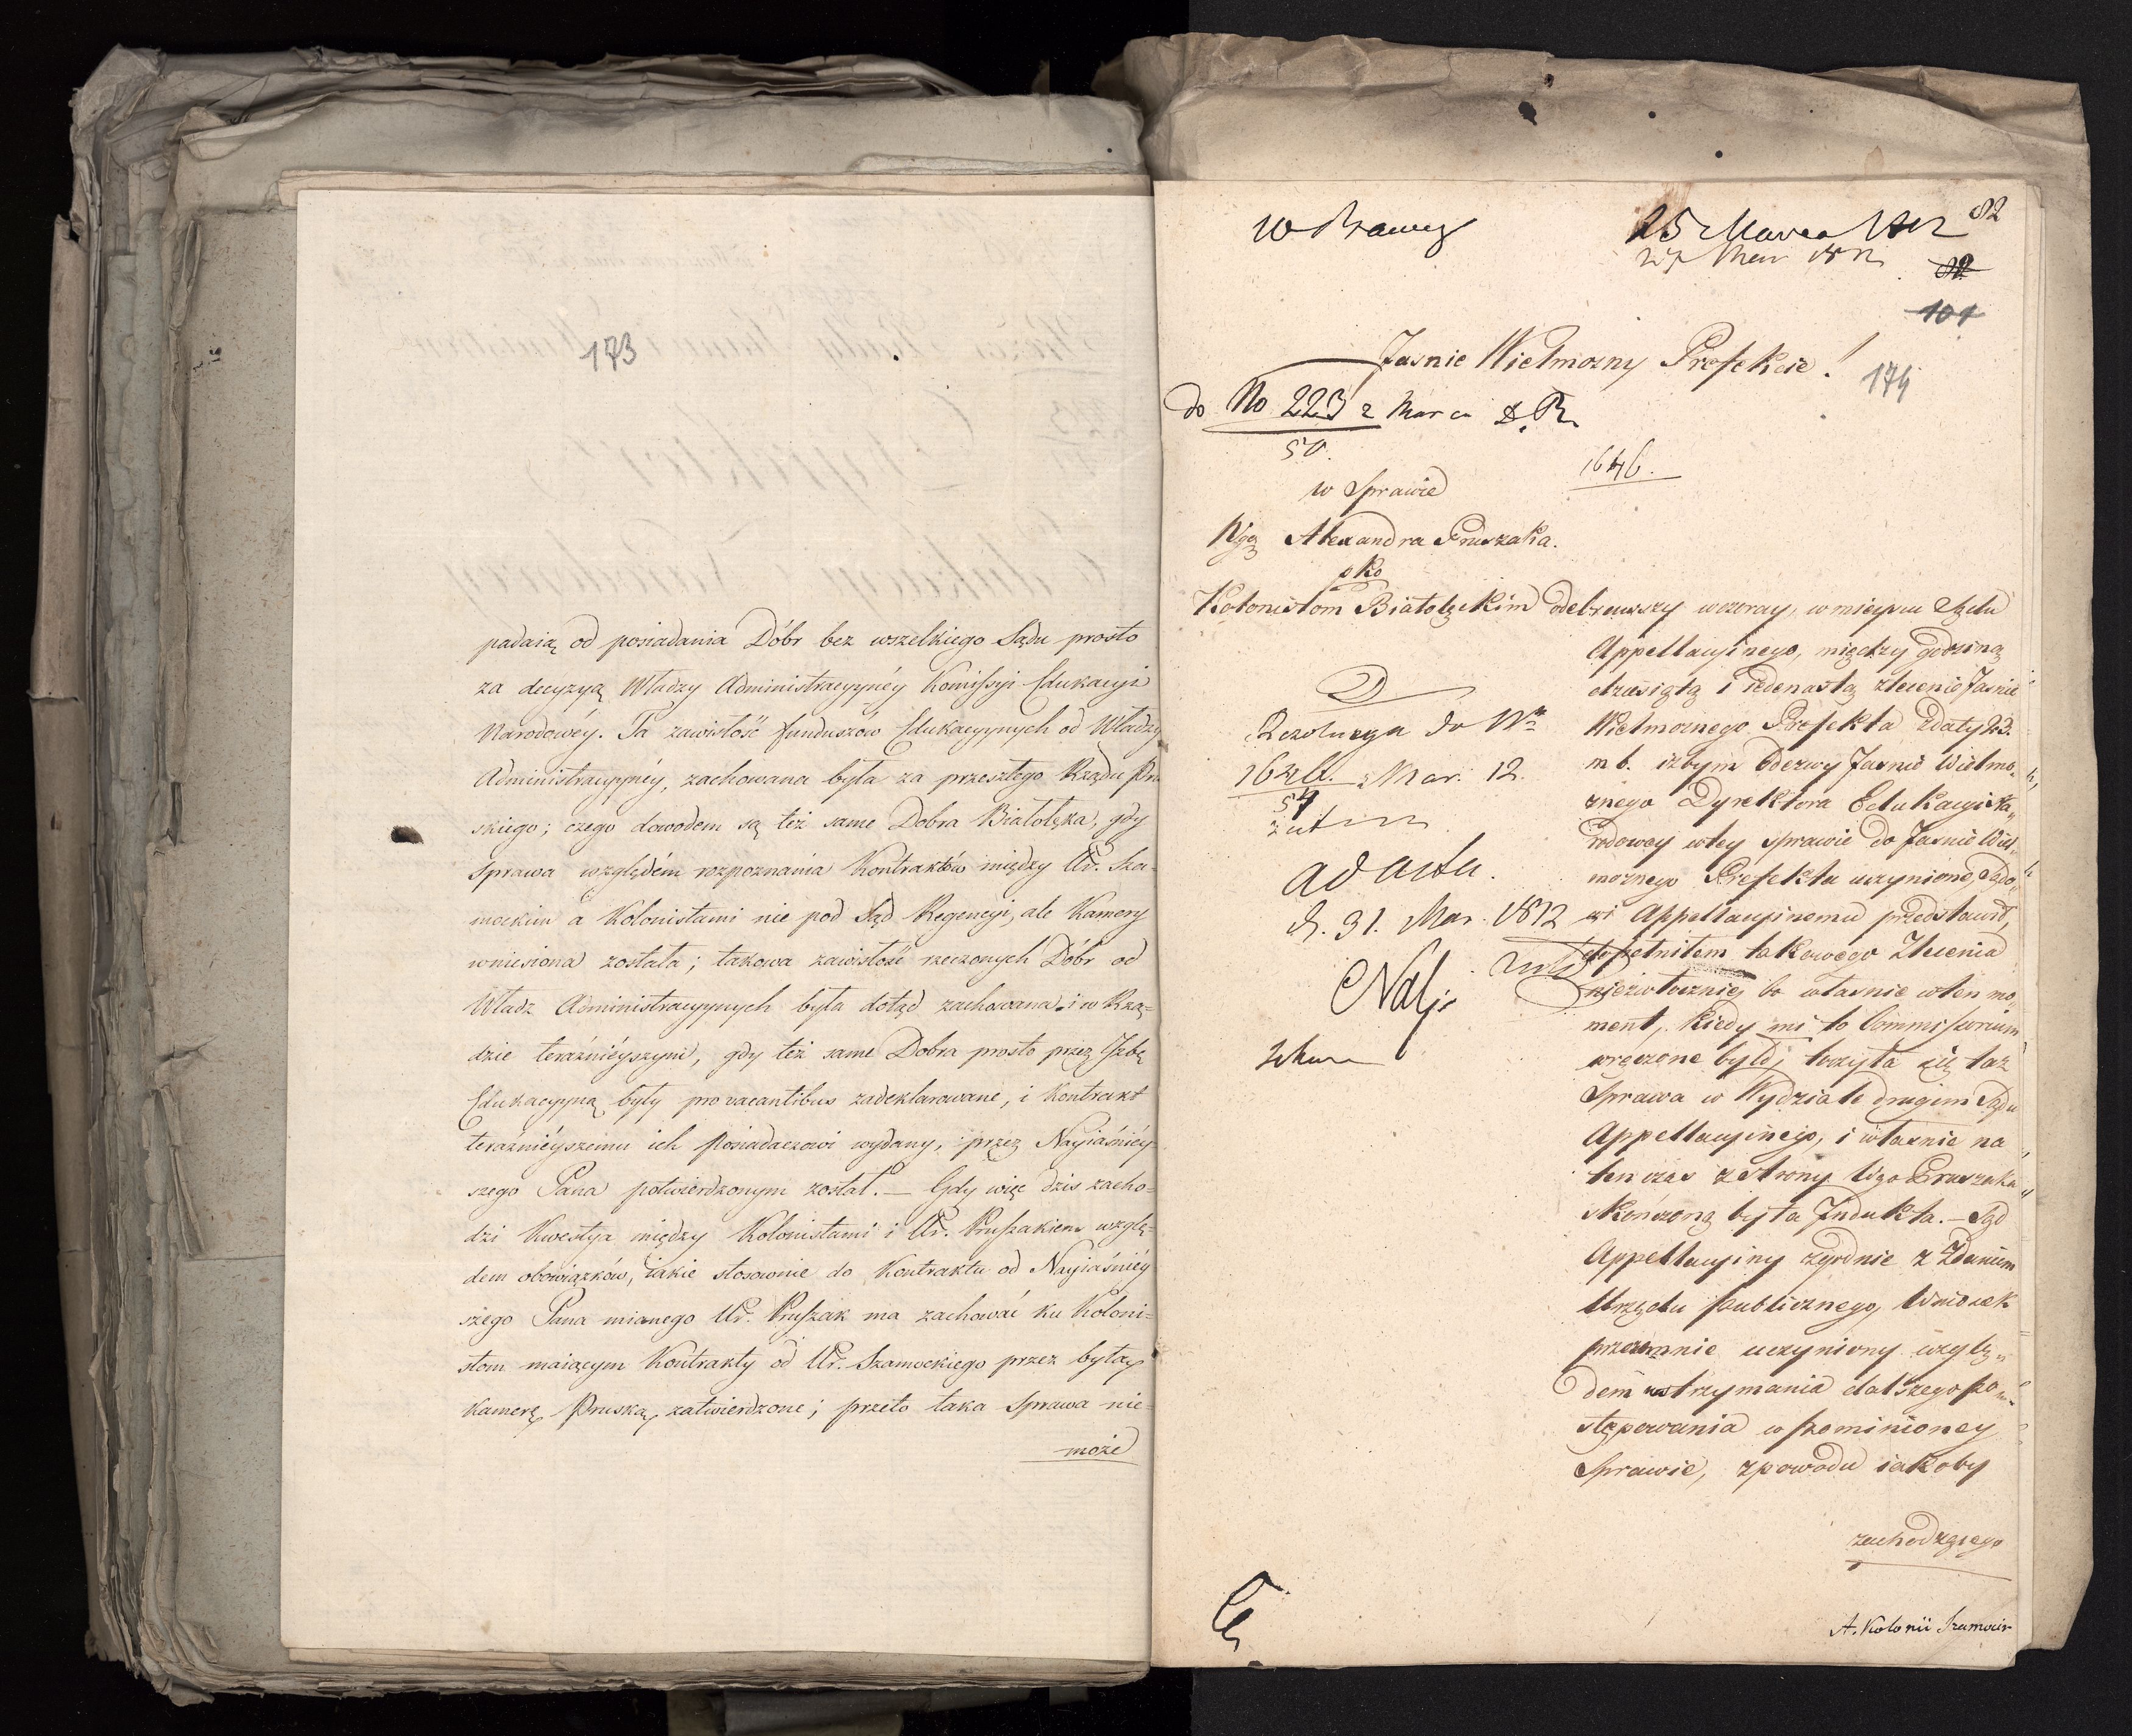 173
padaią od posiadania Dóbr bez wszelkiego Sądu prosto
za decyzyą Władzy Administracyynéy Komissyi Edukacyi
Narodowéy. Ta zawisłość funduszów Edukacyynych od Władzy
Administracyynéy, zachowana była za przeszłego Rządu Pru
skiego; czego dowodem są też same Dobra Białołęka, gdy
sprawa względém rozpoznania Kontraktów między Ur. Sza-
mockim a Kolonistami nie pod Sąd Regencyi, ale Kamery
wniesiona została; takowa zawisłość rzeczonych Dóbr od
Władz Administracyynych była dotąd zachowana i w Rzą-
dzie teraźnieyszym, gdy też same Dobra prosto przez Izbę
Edukacyyną były pro vacantibus zadeklarowane, i Kontrakt
teraźnieyszemu ich Posiadaczowi wydany, przez Nayiaśniéy
szego Pana potwierdzonym został. — Gdy więc dzis zacho-
dzi Kwestya między Kolonistami i Ur. Pruszakiem wzglę-
dem obowiązków, iakie stosownie do Kontraktu od Nayiaśniéy
szego Pana mianego Ur. Pruszak ma zachować ku Koloni-
stom maiącym Kontrakty od Ur. Szamockiego przez byłą
Kamerę Pruską zatwierdzone; przeto taka Sprawa nie-
może
25 Marca 1812
82
82
101
Jasnie Wielmozny Prefekcie!
174
do No 223 z Marca
50.
1646.
w Sprawie
Alexandra Pruszaka.
pko
Kolonistom Białołęckim
odebrawszy wczoray, w mieyscu Sądu
Appellacyinego, między godziną
dziesiątą i iedenastą zlecenie Jasnie
Wielmoznego Prefekta z daty 23.
m b. izbym Odezwy Jasnie Wielmo,,
znego Dyrektora Edukacyi Na,,
rodowey w tey sprawie do Jasnie Wiel,,
moznego Prefekta uczynione, Sądo,,
wi Appellacyinemu przedstawił,
dopełniłem takowego Zlecenia
niezwłocznie, bo własnie w ten mo,,
ment, kiedy mi to Commissorium
wręczone było, toczyła się taż
Sprawa w Wydziale drugim Sądu
Appellacyinego, i własnie na
ten czas z strony Ugo Pruszaka
skończoną była Indukta. — Sąd
Appellacyiny zgodnie z Zdaniem
Urzędu publicznego, Wniosek
przezemnie uczyniony wzglę,,
dem wstrzymania dalszego po,,
stępowania w pomienioney
Sprawie, z powodu iakoby
zachodzącego
Rezolucya do Nru
1646. z Mar. 12.
54
ad acta.
d. 31. Mar. 1812
A. Kolonii Szamocin